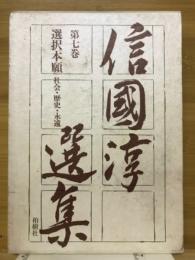 信國淳
選集
第七巻
選択本願
社会・歴史・永遠
柏樹社